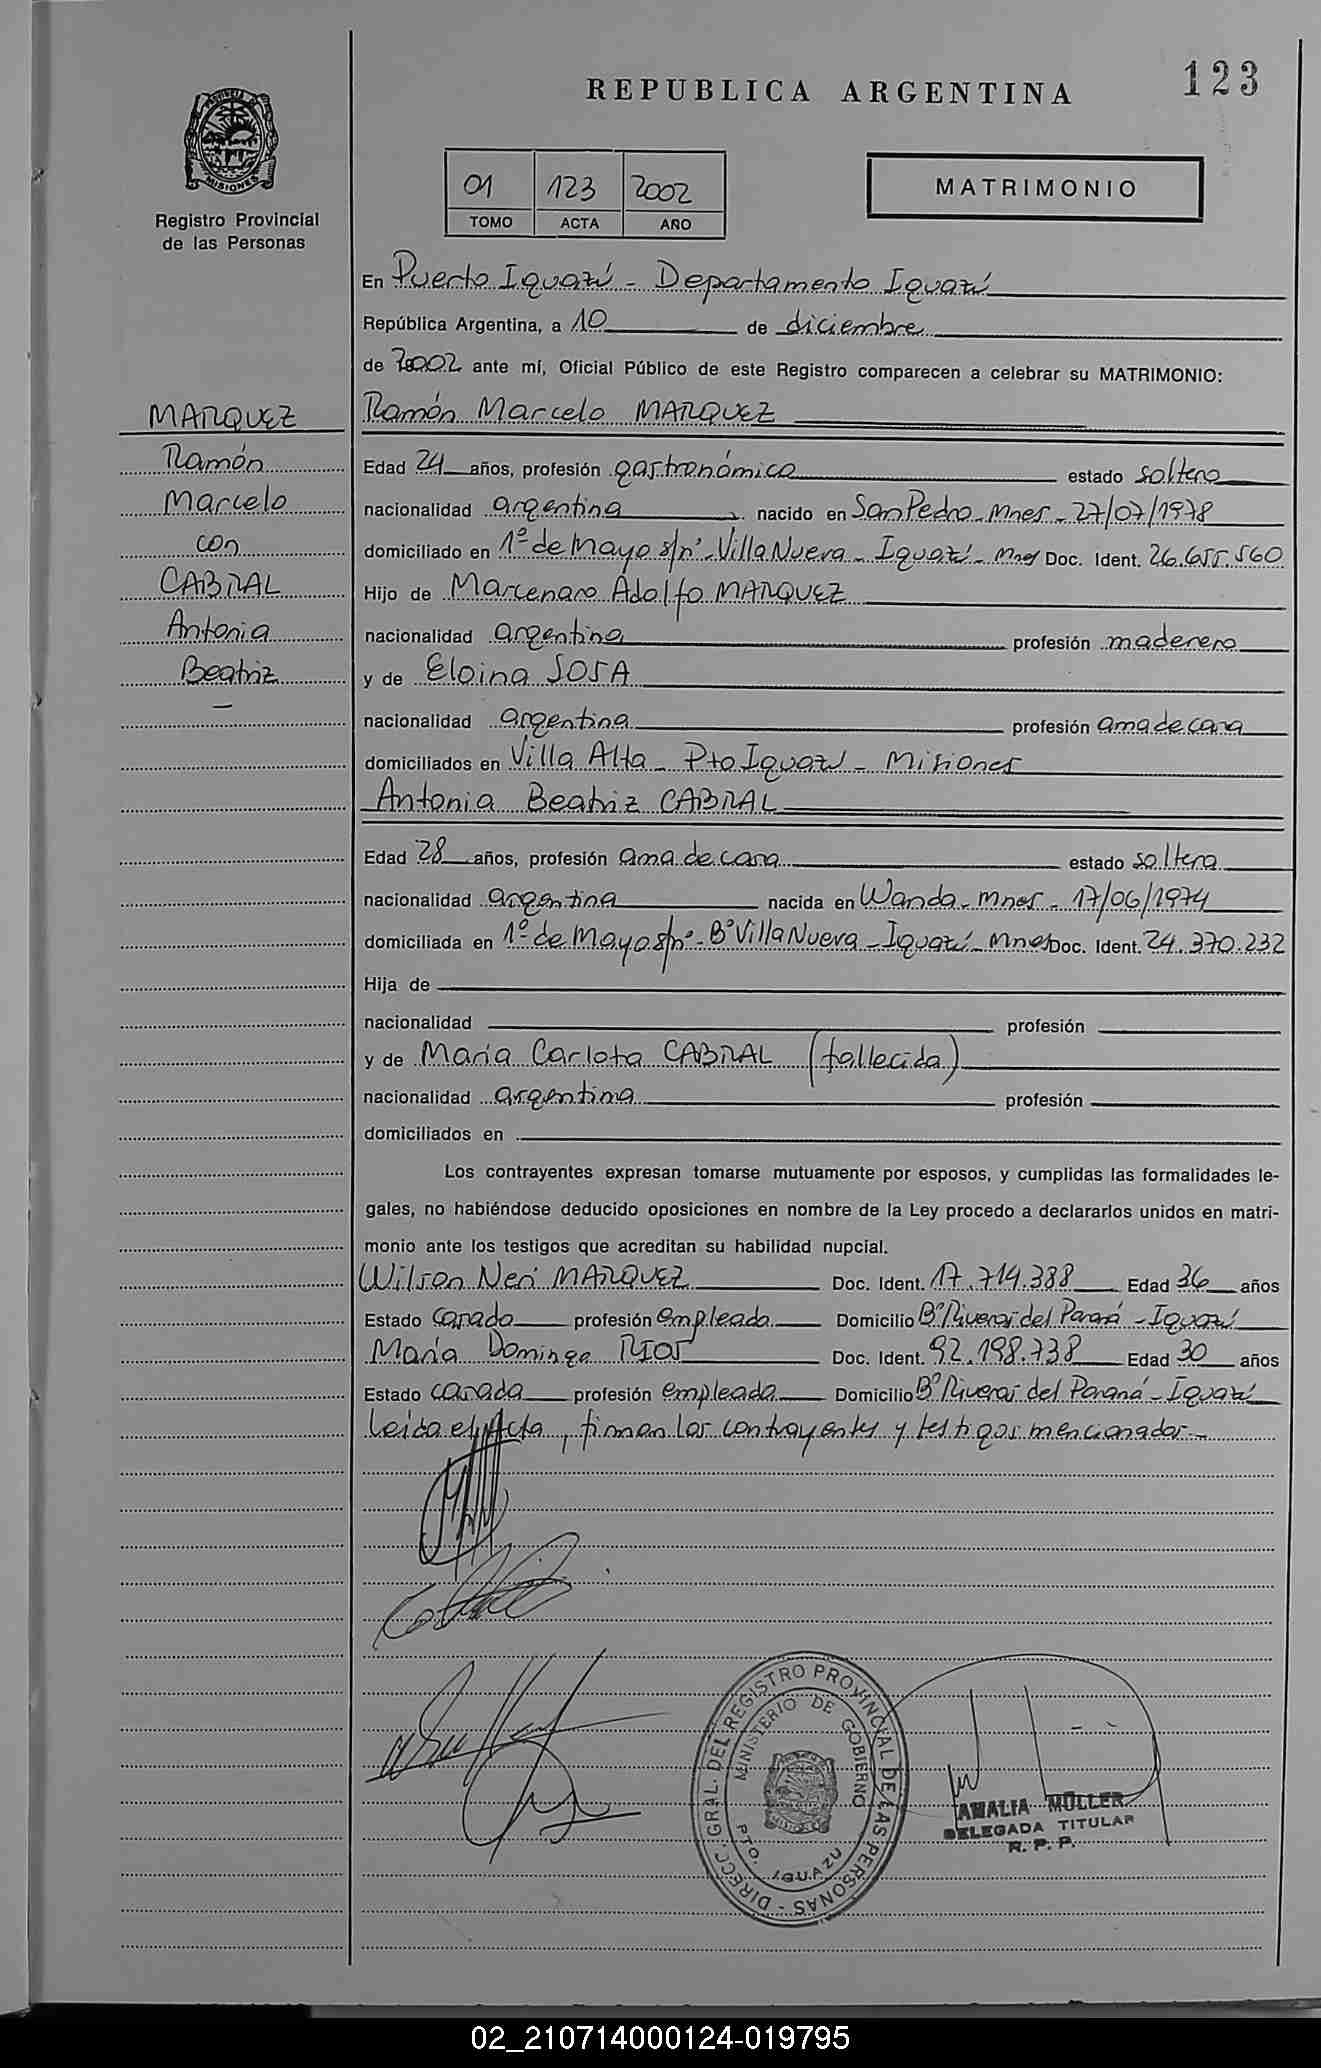 123
REPUBLICA ARGENTINA
PROVINCIA DE
MISIONES
Registro Provincial
de las Personas
01 123 2002
TOMO ACTA AÑO
MATRIMONIO
En Puerto Iguazú - Departamento Iguazú
República Argentina, a 10 de diciembre
de 2002 ante mí, Oficial Público de este Registro comparecen a celebrar su MATRIMONIO:
MARQUEZ
Ramón
Marcelo
con
CABRAL
Antonia
Beatriz
-
Ramón Marcelo MARQUEZ
Edad 24 años, profesión gastronómico estado soltero
nacionalidad argentina nacido en San Pedro - Mnes - 27/07/1978
domiciliado en 1º de Mayo s/nº - Villa Nueva - Iguazú - Mnes Doc. Ident. 26.655.560
Hijo de Marcenaro Adolfo MARQUEZ
nacionalidad argentina profesión maderero
y de Eloina SOSA
nacionalidad argentina profesión ama de casa
domiciliados en Villa Alta - Pto Iguazú - Misiones
Antonia Beatriz CABRAL
Edad 28 años, profesión ama de casa estado soltera
nacionalidad argentina nacida en Wanda - Mnes - 17/06/1974
domiciliada en 1º de Mayo s/nº - Bº Villa Nueva - Iguazú - Mnes Doc. Ident. 24.370.232
Hija de
nacionalidad profesión
y de María Carlota CABRAL (fallecida)
nacionalidad argentina profesión
domiciliados en
Los contrayentes expresan tomarse mutuamente por esposos, y cumplidas las formalidades le-
gales, no habiéndose deducido oposiciones en nombre de la Ley procedo a declararlos unidos en matri-
monio ante los testigos que acreditan su habilidad nupcial.
Wilson Neri MARQUEZ Doc. Ident. 17.714.388 Edad 36 años
Estado casado profesión empleado Domicilio Bº Riveras del Paraná - Iguazú
María Dominga RIOS Doc. Ident. 92.198.738 Edad 30 años
Estado casada profesión empleada Domicilio Bº Riveras del Paraná - Iguazú
Leída el Acta, firman los contrayentes y testigos mencionados -
DIRECC. GRAL. DEL REGISTRO PROVINCIAL DE LAS PERSONAS -
MINISTERIO DE GOBIERNO
PTO. IGUAZU
AMALIA MÜLLER
DELEGADA TITULAR
R. P. P.
02_210714000124-019795